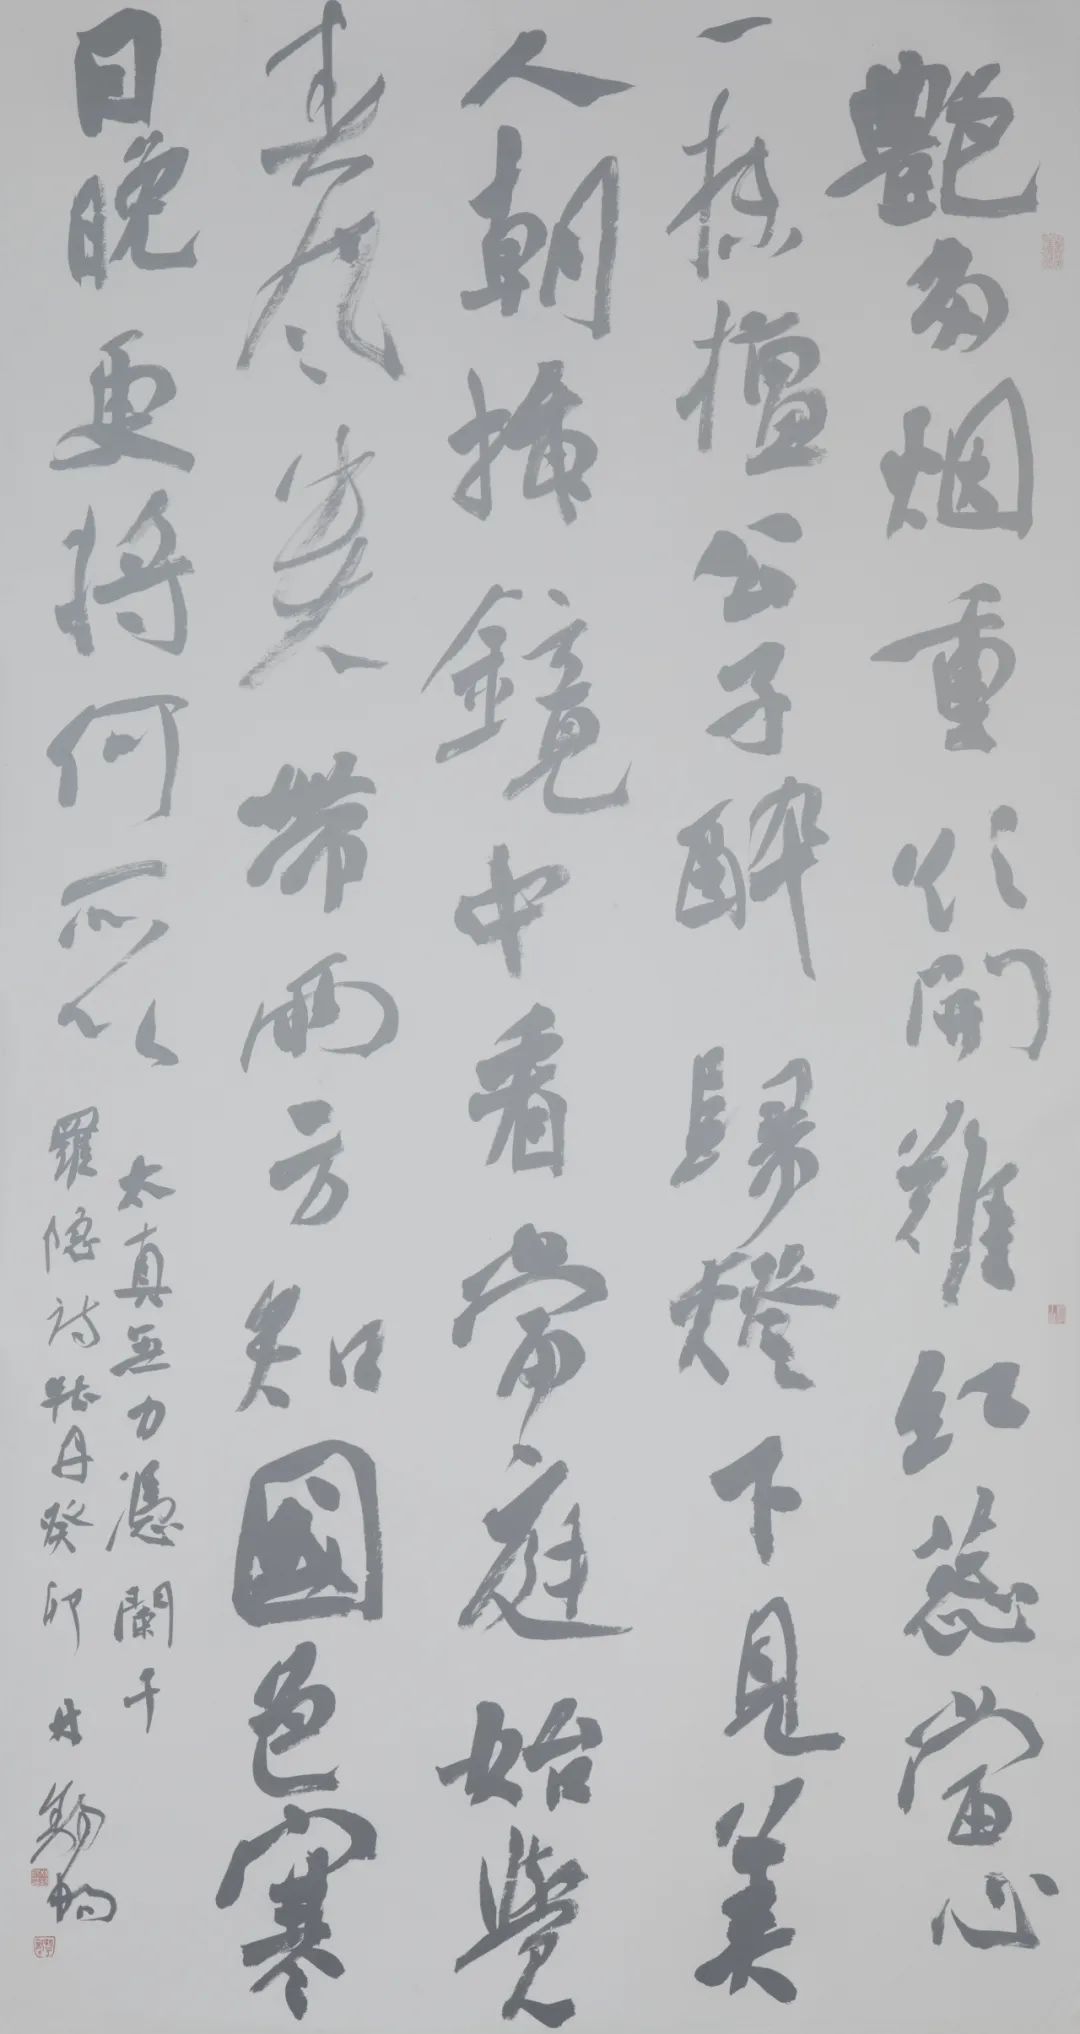 艷多烟重欲開難红蕊當心
一抹檀公子醉歸燈下見美
人朝插鏡中看常庭始覺
春風貴帶雨方知國色寒
日晚更將何所似
太真無力憑闌干
羅隱詩牡丹癸卯